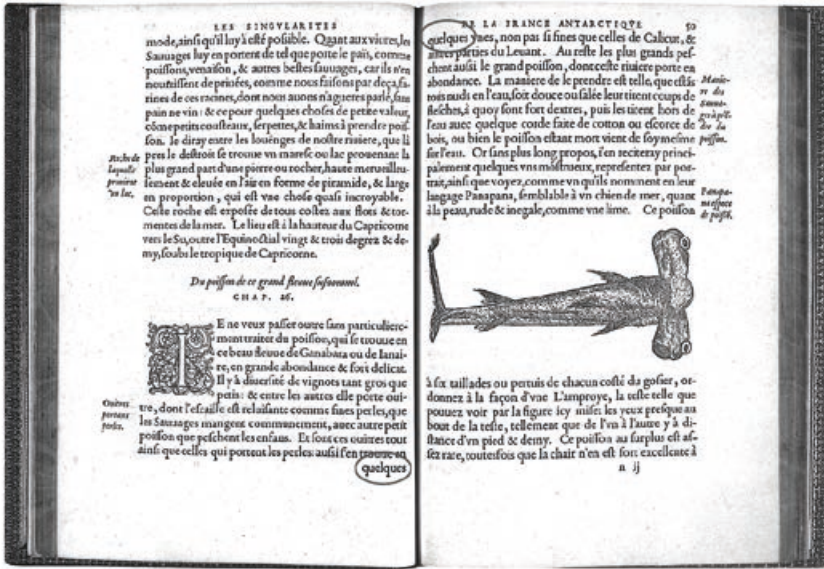 LES SINGVLARITES
mode, ainsi qu'il luy à esté possible. Quant aux viures, les
Sauuages luy en portent de tel que porte le païs, comme
poissons, venaison, & autres bestes sauuages, car ils n'en
nourrissent de priuées, comme nous faisons par deça, fa-
rines de ces racines, dont nous auons n'agueres parlé, sans
pain ne vin: & ce pour quelques choses de petite valeur,
cōme petits cousteaux, serpettes, & haims à prendre pois-
son. Ie diray entre les louënges de nostre riuiere, que là
pres le destroit se trouue vn maresc ou lac prouenant la
plus grand part d'une pierre ou rocher, haute merueilleu-
sement & eleuée en l'air en forme de piramide, & large
en proportion, qui est vne chose quasi incroyable.
Ceste roche est exposée de tous costez aux flots & tor-
mentes de la mer. Le lieu est à la hauteur du Capricorne
vers le Su, outre l'Equinoctial vingt & trois degrez & de-
my, soubs le tropique de Capricorne.
Roche de
laquelle
prouient
vn lac.
Du poisson de ce grand fleuue susnommé.
CHAP. 26.
IE ne veux passer outre sans particuliere-
ment traiter du poisson, qui se trouue en
ce beau fleuue de Ganabara ou de Ianai-
re, en grande abondance & fort delicat.
Il y à diuersité de vignots tant gros que
petis: & entre les autres elle porte oui-
tre, dont l'escaille est reluisante comme fines perles, que
les Sauuages mangent communement, auec autre petit
poisson que peschent les enfans. Et sont ces ouitres tout
ainsi que celles qui portent les perles: aussi s'en trouue en
quelques
Ouitres
portans
perles.
DE LA FRANCE ANTARCTIQVE 50
quelques vnes, non pas si fines que celles de Calicut, &
autres parties du Leuant. Au reste les plus grands pes-
chent aussi le grand poisson, dont ceste riuiere porte en
abondance. La maniere de le prendre est telle, que estās
tous nuds en l'eau, soit douce ou salée leur tirent coups de
flesches, à quoy sont fort dextres, puis les tirent hors de
l'eau auec quelque corde faite de cotton ou escorce de
bois, ou bien le poisson estant mort vient de soymesme
sur l'eau. Or sans plus long propos, i'en reciteray princi-
palement quelques vns mōstrueux, representez par por-
trait, ainsi que voyez, comme vn qu'ils nomment en leur
langage Panapana, semblable à vn chien de mer, quant
à la peau, rude & inegale, comme vne lime. Ce poisson
Manie-
re des
Sauua-
ges à prē-
dre du
poisson.
Panapa-
na espece
de poissō.
à six taillades ou pertuis de chacun costé du gosier, or-
donnez à la façon d'vne Lamproye, la teste telle que
pouuez voir par la figure icy mise: les yeux presque au
bout de la teste, tellement que de l'vn à l'autre y à di-
stance d'vn pied & demy. Ce poisson au surplus est as-
sez rare, toutesfois que la chair n'en est fort excellente à
n ij